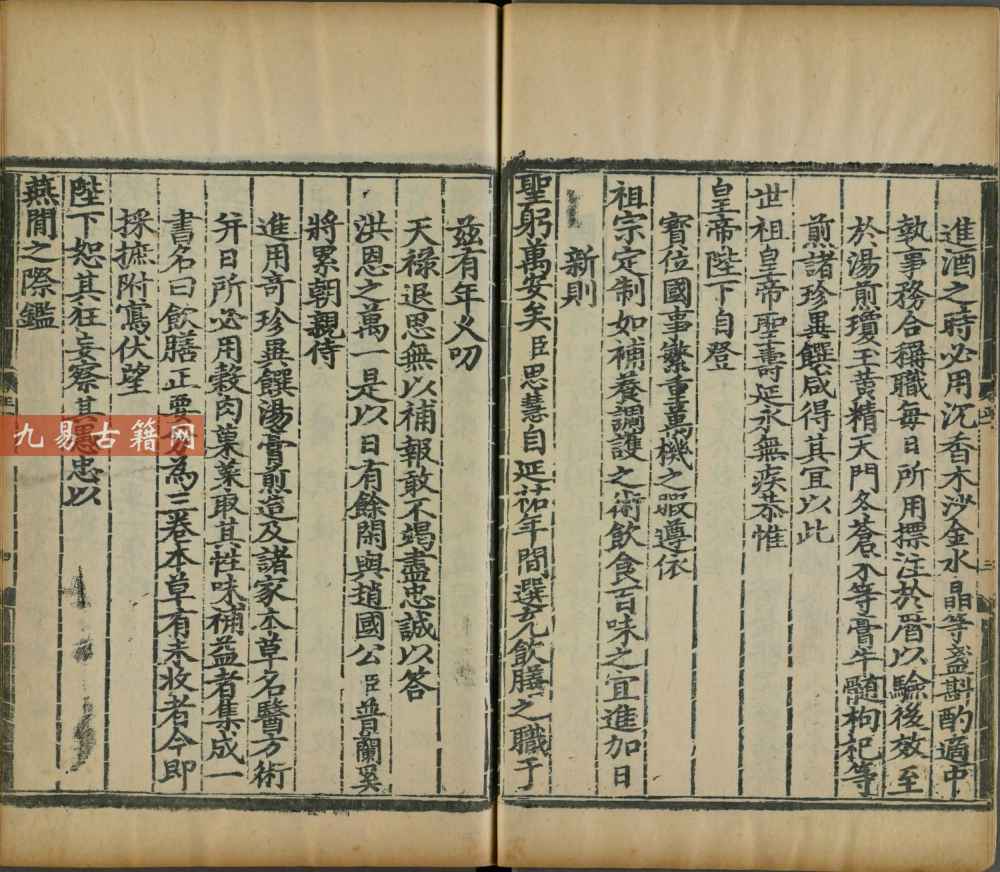 進酒之時必用沉香木沙金水晶等盞斟酌適中
執事務合稱職每日所用摽注於曆以驗後效至
於湯煎瓊玉黃精天門冬蒼朮等膏牛髓枸杞等
煎諸珍異饌咸得其宜以此
世祖皇帝聖壽延永無疾恭惟
皇帝陛下自登
寶位國事繁重萬機之暇遵依
祖宗定制如補養調護之術飲食百味之宜進加日
新則
聖躬萬安矣臣思慧自延祐年間選充飲膳之職于
茲有年乂叨
天祿退思無以補報敢不竭盡忠誠以答
洪恩之萬一是以日有餘閑與趙國公臣普蘭奚
將累朝親侍
進用奇珍異饌湯膏煎造及諸家本草名醫方術
并日所必用穀肉菓菜取其性味補益者集成一
書名曰飲膳正要分為三卷本草有未收者今即
採摭附寫伏望
陛下恕其狂妄察其愚忠以
燕閒之際鑑
九易古籍网